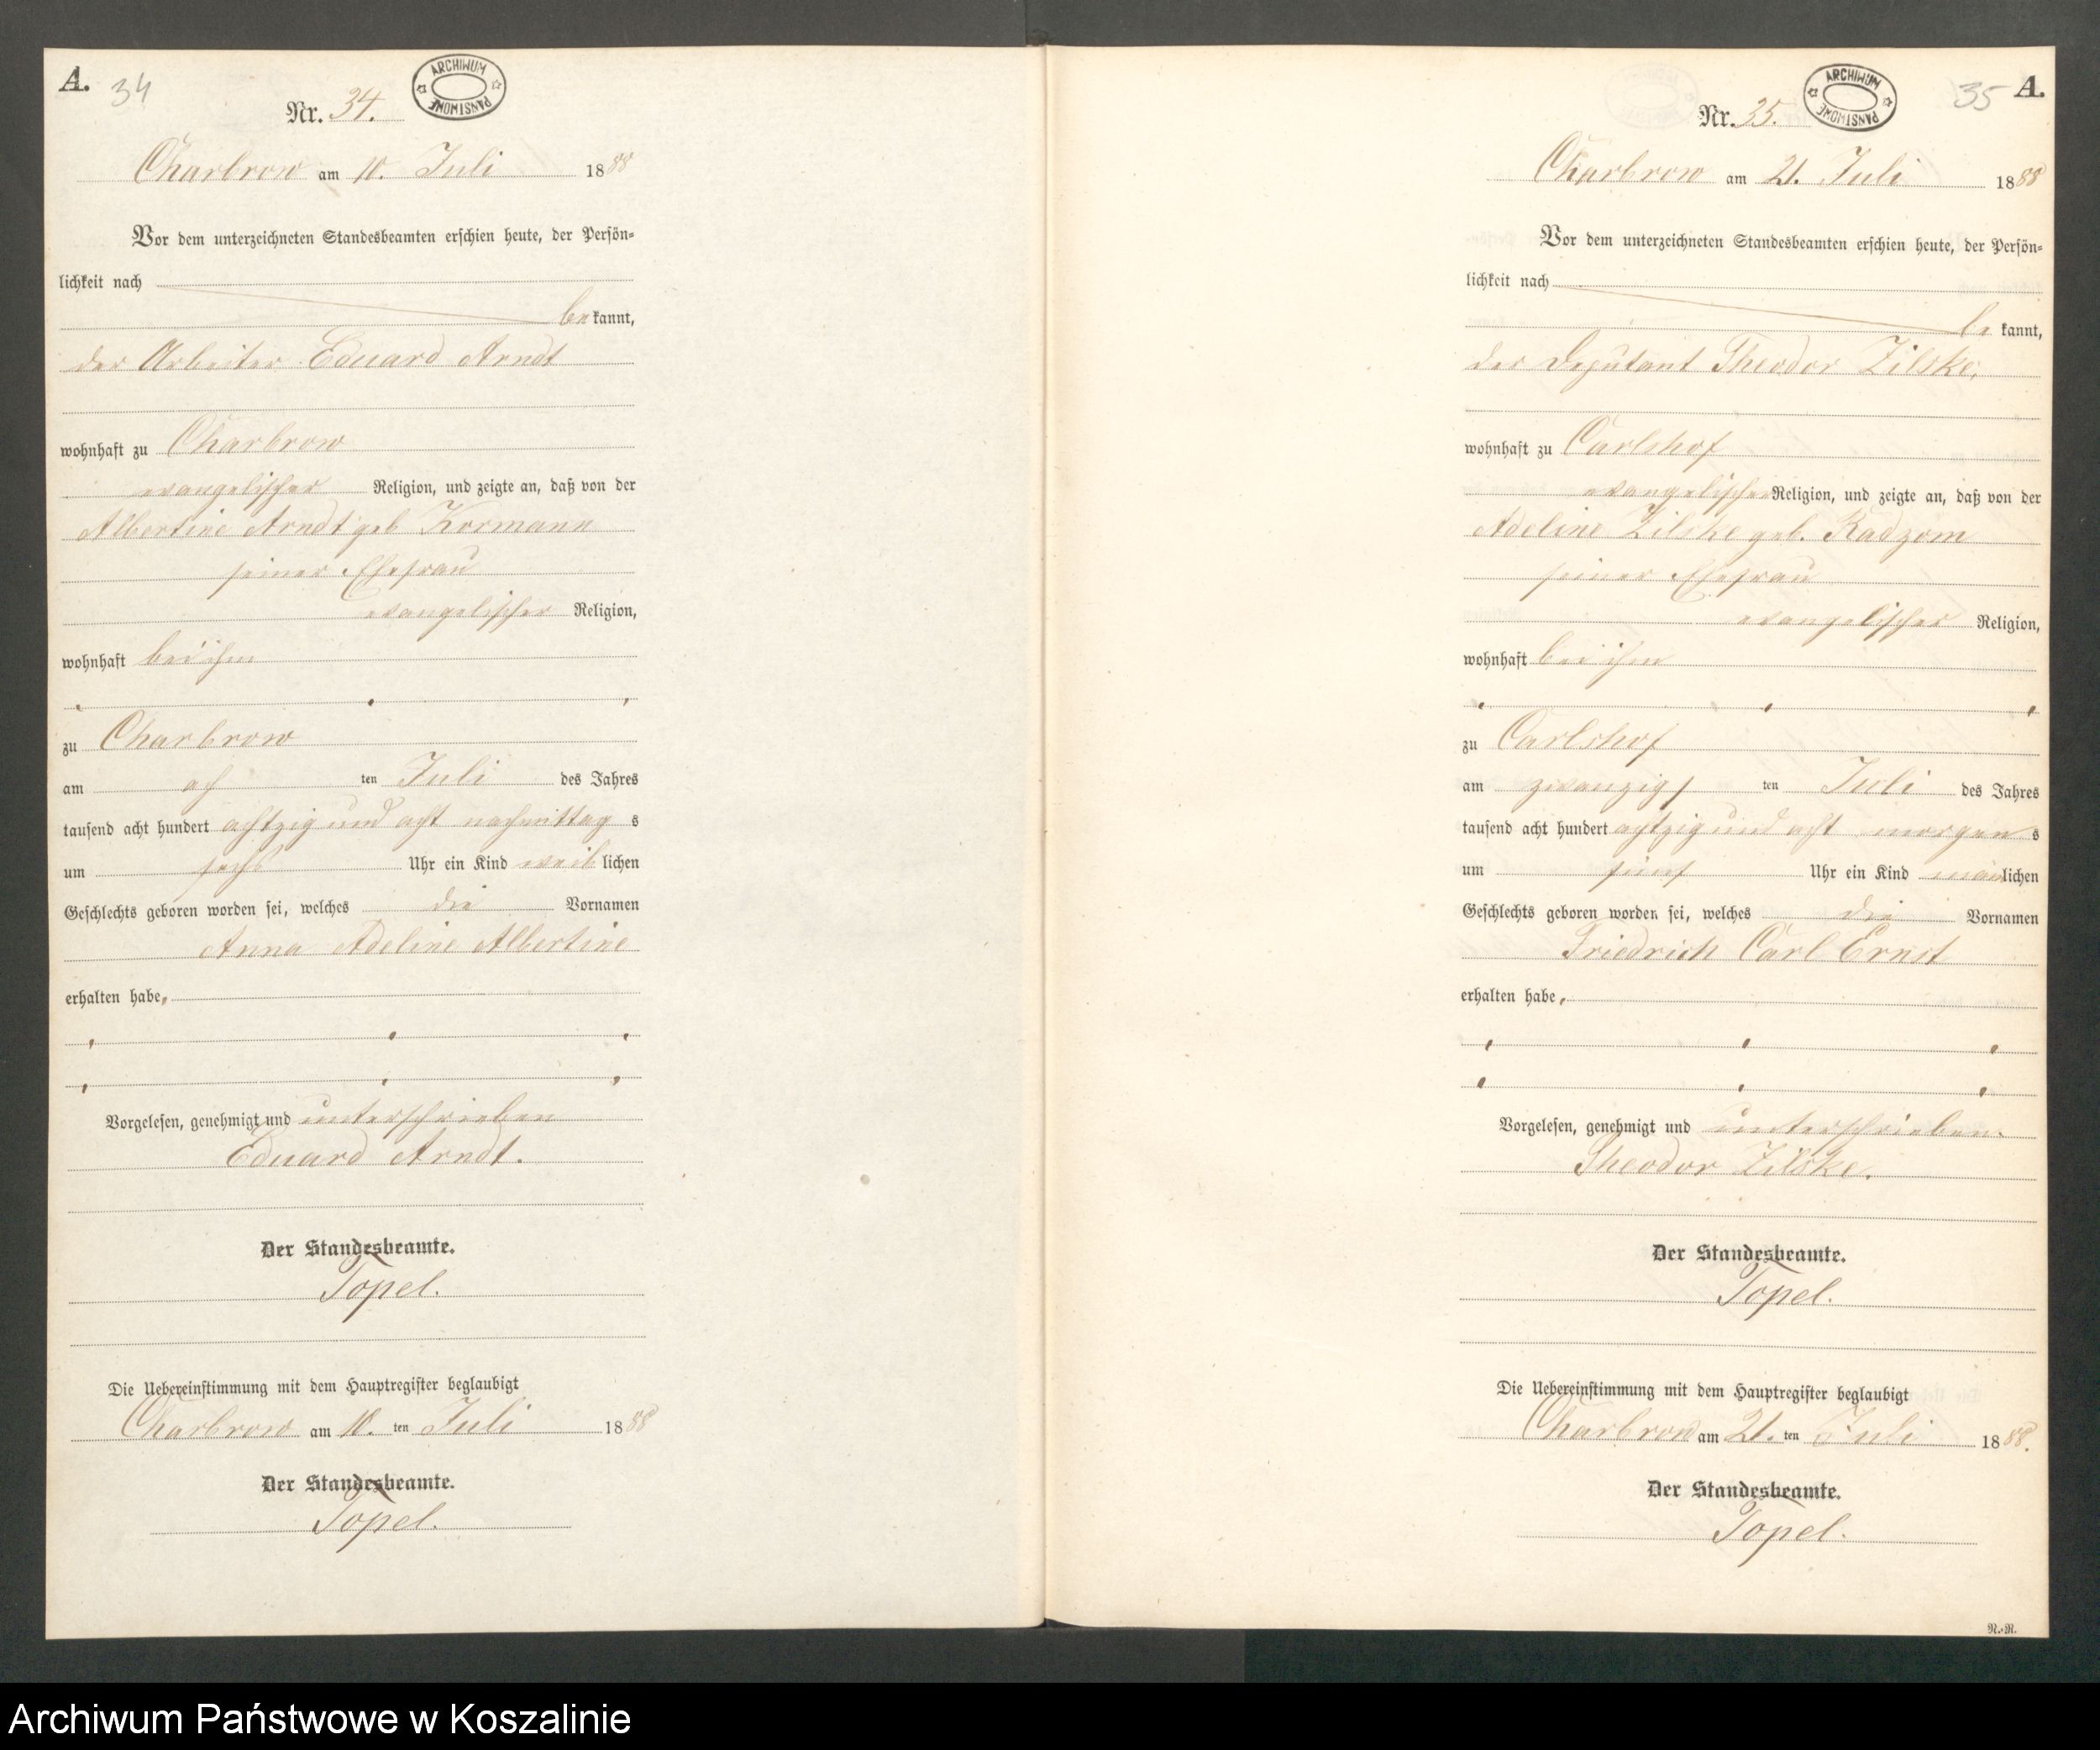 A. 34
ARCHIWUM PAŃSTWOWE
Nr. 34.
Charbrow am 10. Juli 1888
Vor dem unterzeichneten Standesbeamten erschien heute, der Persön-
lichkeit nach
bekannt,
der Arbeiter Eduard Arndt
wohnhaft zu Charbrow
evangelischer Religion, und zeigte an, daß von der
Albertine Arndt geb Kormann
seiner Ehefrau
evangelischer Religion,
wohnhaft bei ihm
zu Charbrow
am ach ten Juli des Jahres
tausend acht hundert achtzig und acht nachmittag s
um sechs Uhr ein Kind weiblichen
Geschlechts geboren worden sei, welches die Vornamen
Anna Adeline Albertine
erhalten habe,
Vorgelesen, genehmigt und unterschrieben
Eduard Arndt.
Der Standesbeamte.
Topel.
Die Uebereinstimmung mit dem Hauptregister beglaubigt
Charbrow am 10. ten Juli 1888
Der Standesbeamte.
Topel.
35 A.
ARCHIWUM PAŃSTWOWE
Nr. 35.
Charbrow am 21. Juli 1888
Vor dem unterzeichneten Standesbeamten erschien heute, der Persön-
lichkeit nach
be kannt,
der Deputant Theodor Zilske,
wohnhaft zu Carlshof
evangelischer Religion, und zeigte an, daß von der
Adeline Zilske geb. Radzom
seiner Ehefrau
evangelischer Religion,
wohnhaft bei ihm
zu Carlshof
am zwanzigs ten Juli des Jahres
tausend acht hundert achtzig und acht morgen s
um fünf Uhr ein Kind mänlichen
Geschlechts geboren worden sei, welches die Vornamen
Friedrich Carl Ernst
erhalten habe,
Vorgelesen, genehmigt und unterschrieben.
Theodor Zilske.
Der Standesbeamte.
Topel.
Die Uebereinstimmung mit dem Hauptregister beglaubigt
Charbrow am 21. ten Juli 1888.
Der Standesbeamte.
Topel.
N.-N.
Archiwum Państwowe w Koszalinie